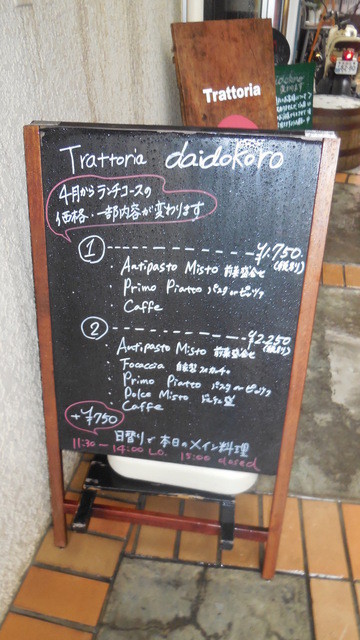 Trattoria
Trattoria daidokoro
4月からランチコースの
価格・一部内容が変わります
① ¥1.750.
(税別)
・Antipasto Misto 前菜盛合せ
・Primo Piatto パスタ or ピッツァ
・Caffe
② ¥2.250
(税別)
・Antipasto Misto 前菜盛合せ
・Focaccia 自家製フォカッチャ
・Primo Piatto パスタ or ピッツァ
・Dolce Misto ドルチェ盛
・Caffe
+¥750 日替りで本日のメイン料理
11:30-14:00 L.O. 15:00 closed